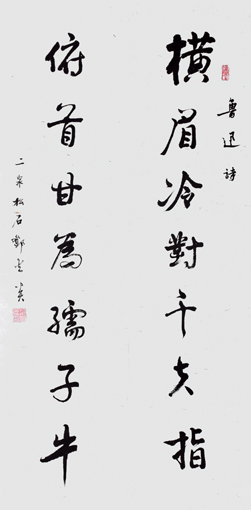 魯迅詩
橫眉冷對千夫指
俯首甘為孺子牛
二泉松石鄭